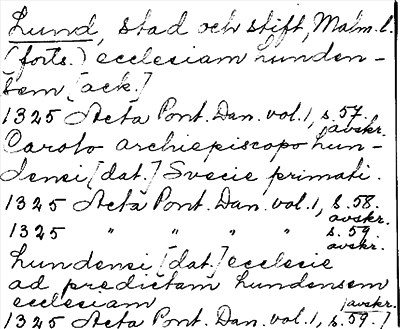 Lund, stad och stift, Malm.l.
(forts.) ecclesiam lunden-
sem [ack.]
1325 Acta Pont. Dan. vol. 1, s. 57.
avskr.
Caroto archiepiscopo lun-
densi [dat.] Svecie primati.
1325 Acta Pont. Dan. vol. 1, s. 58.
avskr.
1325 " " " " s. 59
avskr.
lundensi [dat.] ecclesie
ad predictam lundensem
ecclesiam [avskr.
1325 Acta Pont. Dan. vol. 1, s. 59.]